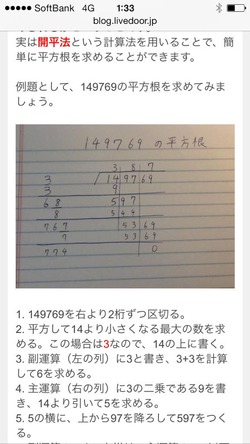 SoftBank 4G 1:33
blog.livedoor.jp
実は開平法という計算法を用いることで、簡
単に平方根を求めることができます。
例題として、149769の平方根を求めてみま
しょう。
149769 の平方根
3 8 7
3 14 97 69
3 9
68 5 97
8 5 44
767 53 69
7 53 69
774 0
1. 149769を右より2桁ずつ区切る。
2. 平方して14より小さくなる最大の数を求
める。この場合は3なので、14の上に書く。
3. 副運算（左の列）に3と書き、3+3を計算
して6を求める。
4. 主運算（右の列）に3の二乗である9を書
き、14より引いて5を求める。
5. 5の横に、上から97を降ろして597をつく
る。